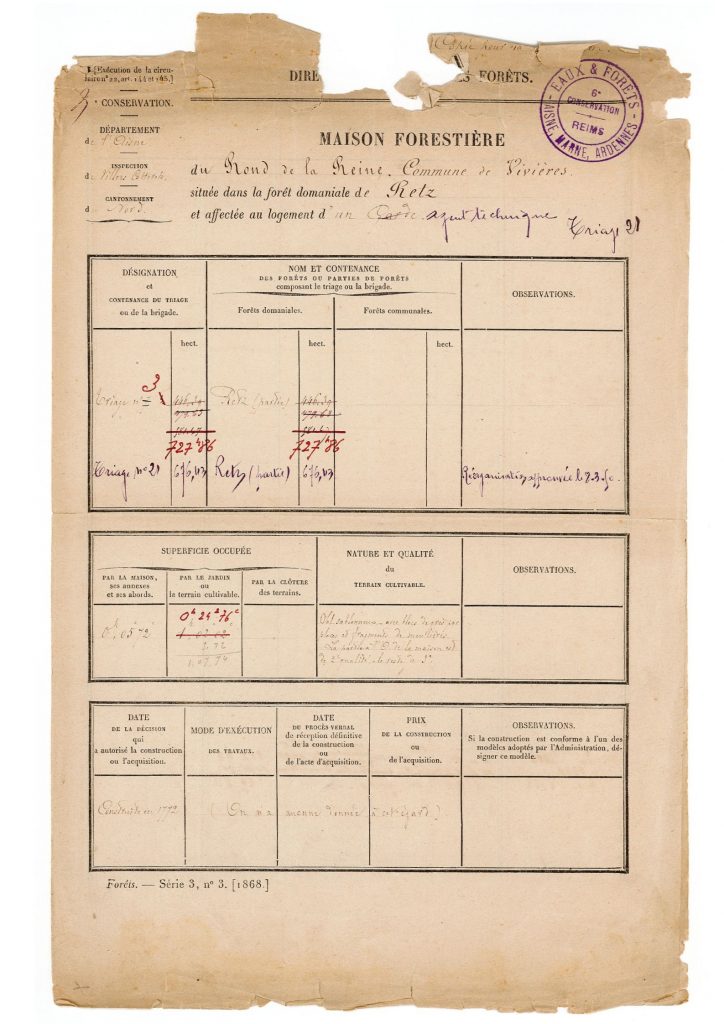 [Exécution de la circu-
laire nº 22, art. 144 et 145.]
CONSERVATION.
DÉPARTEMENT
de l'Aisne
INSPECTION
de Villers Cotterêts
CANTONNEMENT
de Nord
Copie pour
DIRE FORÊTS.
EAUX & FORÊTS
6e
CONSERVATION
REIMS
AISNE, MARNE, ARDENNES
MAISON FORESTIÈRE
du Rond de la Reine. Commune de Vivières.
située dans la forêt domaniale de Retz
et affectée au logement d'un Garde agent technique
Triage 21
DÉSIGNATION
et
CONTENANCE DU TRIAGE
ou de la brigade.
NOM ET CONTENANCE
DES FORÊTS OU PARTIES DE FORÊTS
composant le triage ou la brigade.
Forêts domaniales.
Forêts communales.
OBSERVATIONS.
hect. hect. hect.
3
Triage nº Retz (partie)
727h86 727h86
Triage nº 21 676,43 Retz (partie) 676,43 Réorganisation approuvée le
SUPERFICIE OCCUPÉE
PAR LA MAISON,
ses annexes
et ses abords.
PAR LE JARDIN
ou
le terrain cultivable.
PAR LA CLÔTURE
des terrains.
NATURE ET QUALITÉ
du
TERRAIN CULTIVABLE.
OBSERVATIONS.
0h 05a 72c
0h 24a 76c
Sol sablonneux avec blocs de grès
et fragments de meulières.
La partie à l'O. de la maison est
de 2e qualité, le reste de 3e
DATE
DE LA DÉCISION
qui
a autorisé la construction
ou l'acquisition.
MODE D'EXÉCUTION
DES TRAVAUX.
DATE
DU PROCÈS-VERBAL
de réception définitive
de la construction
ou
de l'acte d'acquisition.
PRIX
DE LA CONSTRUCTION
ou
de l'acquisition.
OBSERVATIONS.
Si la construction est conforme à l'un des
modèles adoptés par l'Administration, dé-
signer ce modèle.
Construite en 1792 (On n'a aucune donnée à cet égard)
Forêts. — Série 3, nº 3. [1868.]